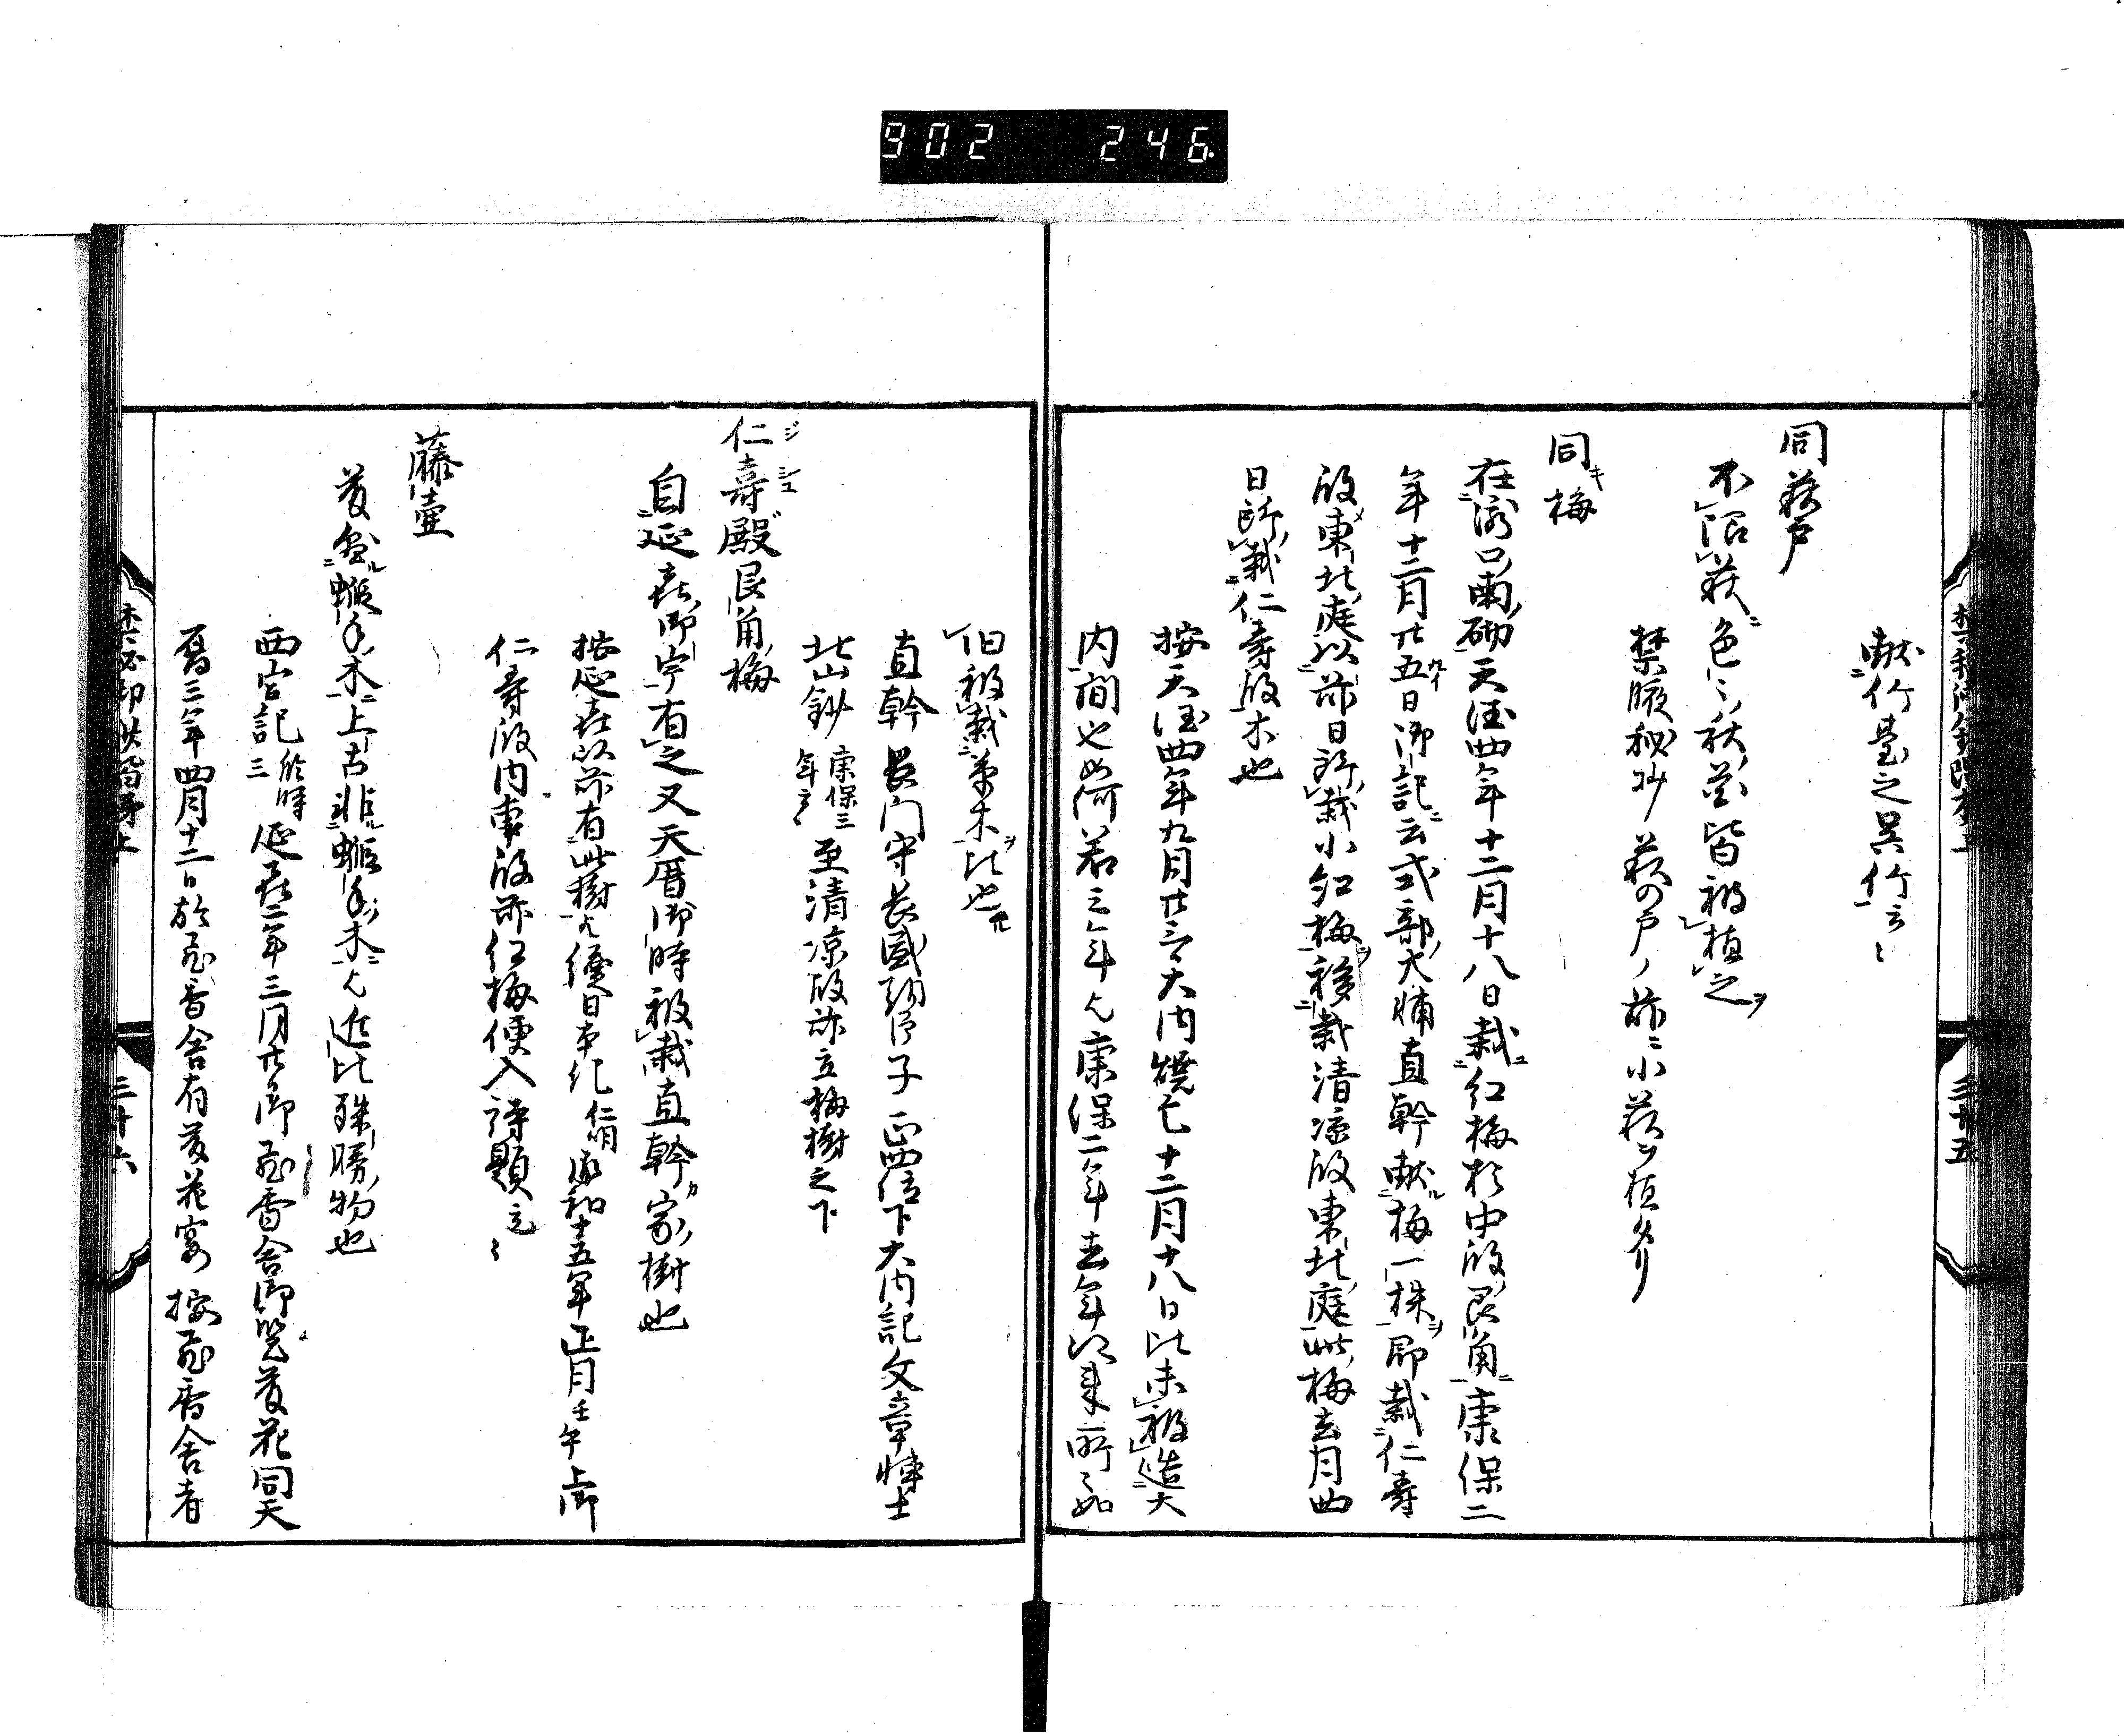 902 246
献竹臺之異竹云々
同萩戸
不限萩色々秋草皆被植之
禁腋秘抄 萩の戸ノ前ニ小萩ヲ植タリ
同梅
在瀧口南砌天徳四年十二月十八日栽紅梅於中殿艮角康保二
年十二月廿五日御記云式部大輔直幹献梅一株即栽仁寿
殿東北庭以前日所栽小紅梅移栽清凉殿東北庭此梅去月四
日所栽仁寿殿木也
按天徳四年九月廿三日大内焼亡十二月十八日比未被造大
内間也如何若三年欤康保二年去年以来所々如
旧被栽草木比也
直幹 長門守長盛朝臣子 正四位下大内記文章博士
北山鈔 康保三年云々 至清凉殿前立梅樹之下
仁壽殿艮角梅
自延喜御宇有之又天暦御時被栽直幹家樹也
按延喜以前有此樹欤續日本後紀 仁明 承和十五年正月壬午上御
仁寿殿内宴殿前紅梅便入詩題云々
藤壷
西宮記 臨時三 延喜二年三月廿御飛香舎御覧藤花同天
暦三年四月十二日於飛香舎有藤花宴 按飛香舎者
三十五
三十六